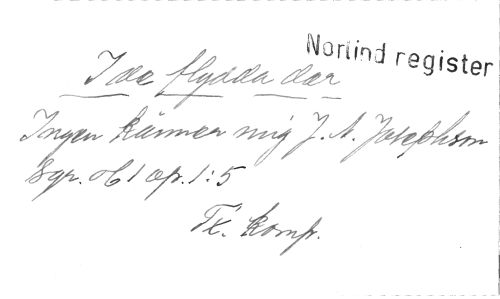 Norlind register
I de flydda dar
Ingen känner mig J. A. Josephson
Sgr. H 1 op. 1:5
Tr. komp.